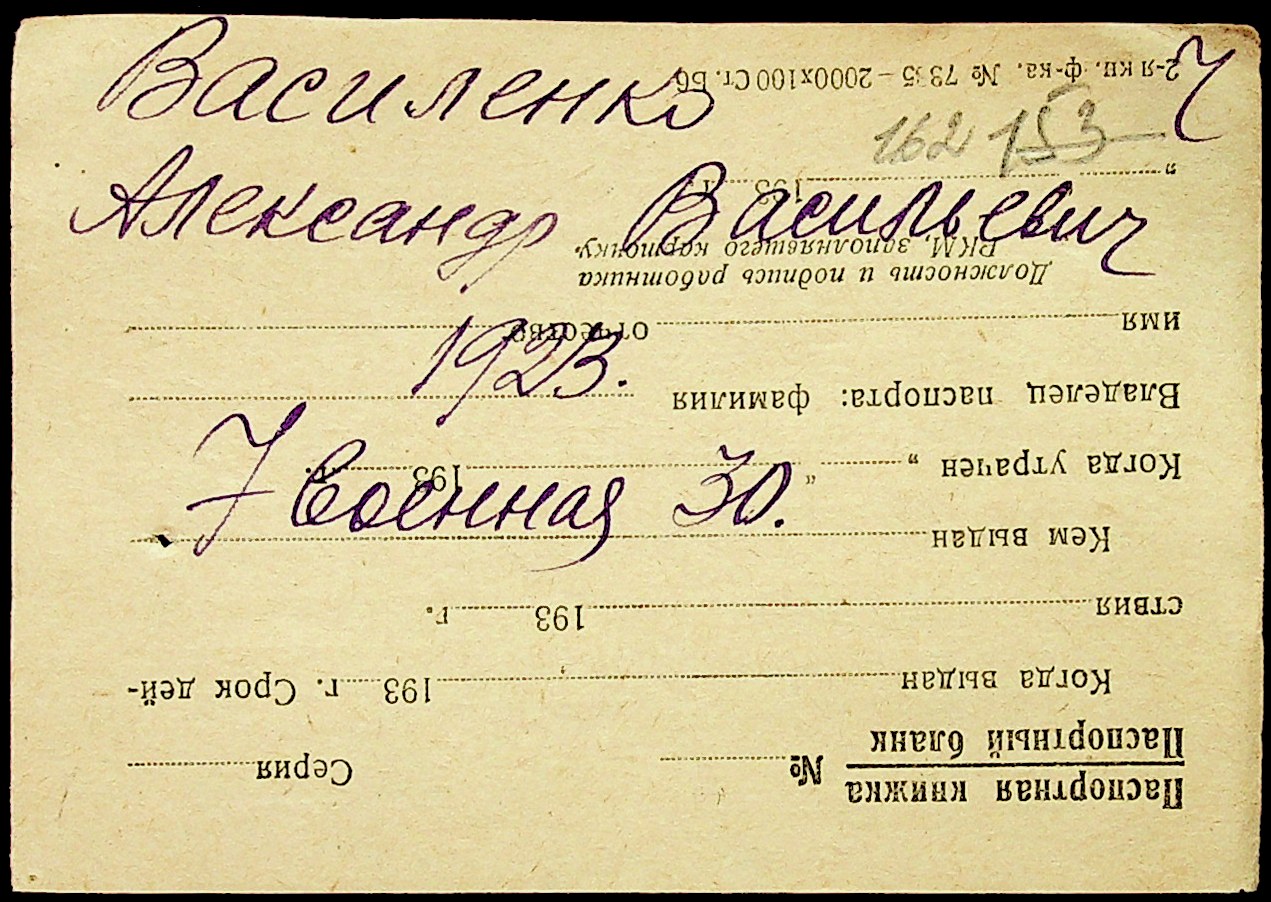 Василенко 7
162 153
Александр Васильевич
1923.
7 Военная 30.
Паспортная книжка
Паспортный бланк № Серия
Когда выдан 193 г. Срок дей-
ствия 193 г.
Кем выдан
Когда утрачен „ “ 193 г.
Владелец паспорта: фамилия
имя отчество
Должность и подпись работника
РКМ, заполнявшего карточку.
„ 193
2-я кн. ф-ка. № 7335 – 2000х100 Ст. Б6